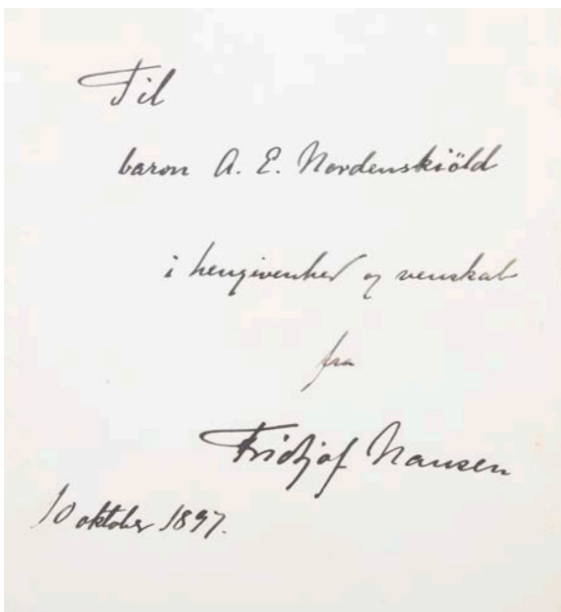 Til
baron A. E. Nordenskiöld
i hengivenhed og venskab
fra
Fridtjof Nansen
10 oktober 1897.